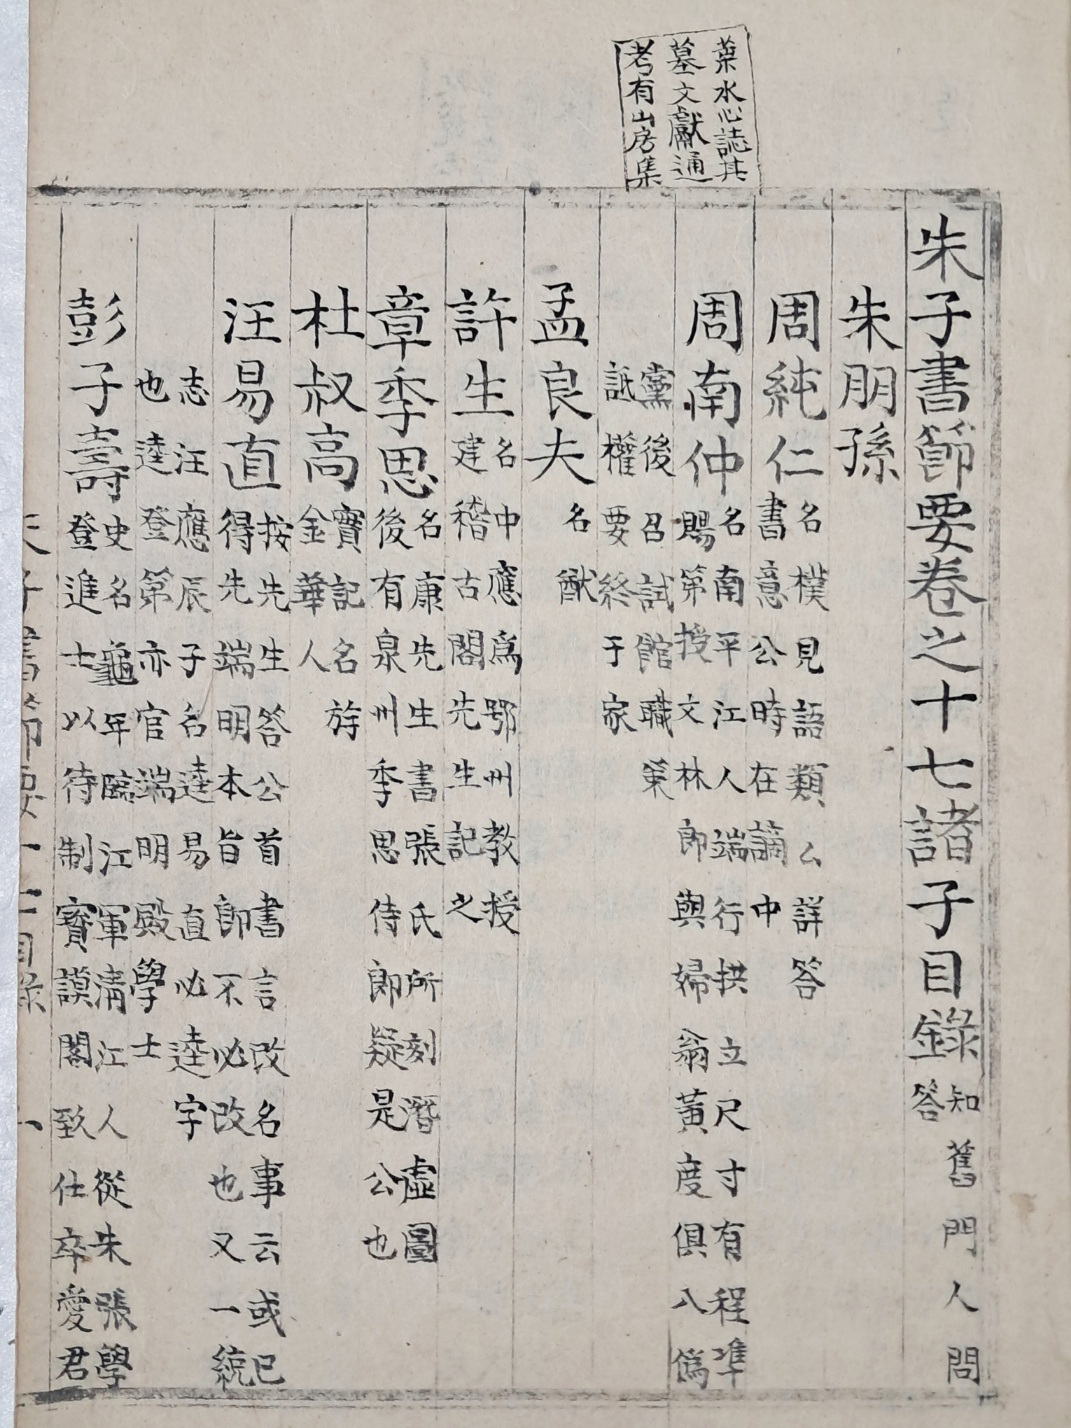 葉水心誌其
墓文獻通
考有山房集
朱子書節要卷之十七諸子目錄 知舊門人問
答
朱朋孫
周純仁 名樸見語類公詳答
書意公時在謫中
周南仲 名南平江人端行拱立尺寸有程準
賜第授文林郎與婦翁黃度俱入僞
黨後召試館職策
詆權要終于家
孟良夫 名猷
許生 名中應爲鄂州教授
建稽古閣先生記之
章季思 名康先生書張氏所刻潛虛圖
後有泉州季思侍郎疑是公也
杜叔高 寶記名斿
金華人
汪易直 按先生答公首書言改名事云或已
得先端明本旨卽不必改也又一統
志汪應辰子名逵易直必逵字
也逵登第亦官端明殿學士
彭子壽 史名龜年臨江軍清江人從朱張學
登進士以待制寶謨閣致仕卒愛君